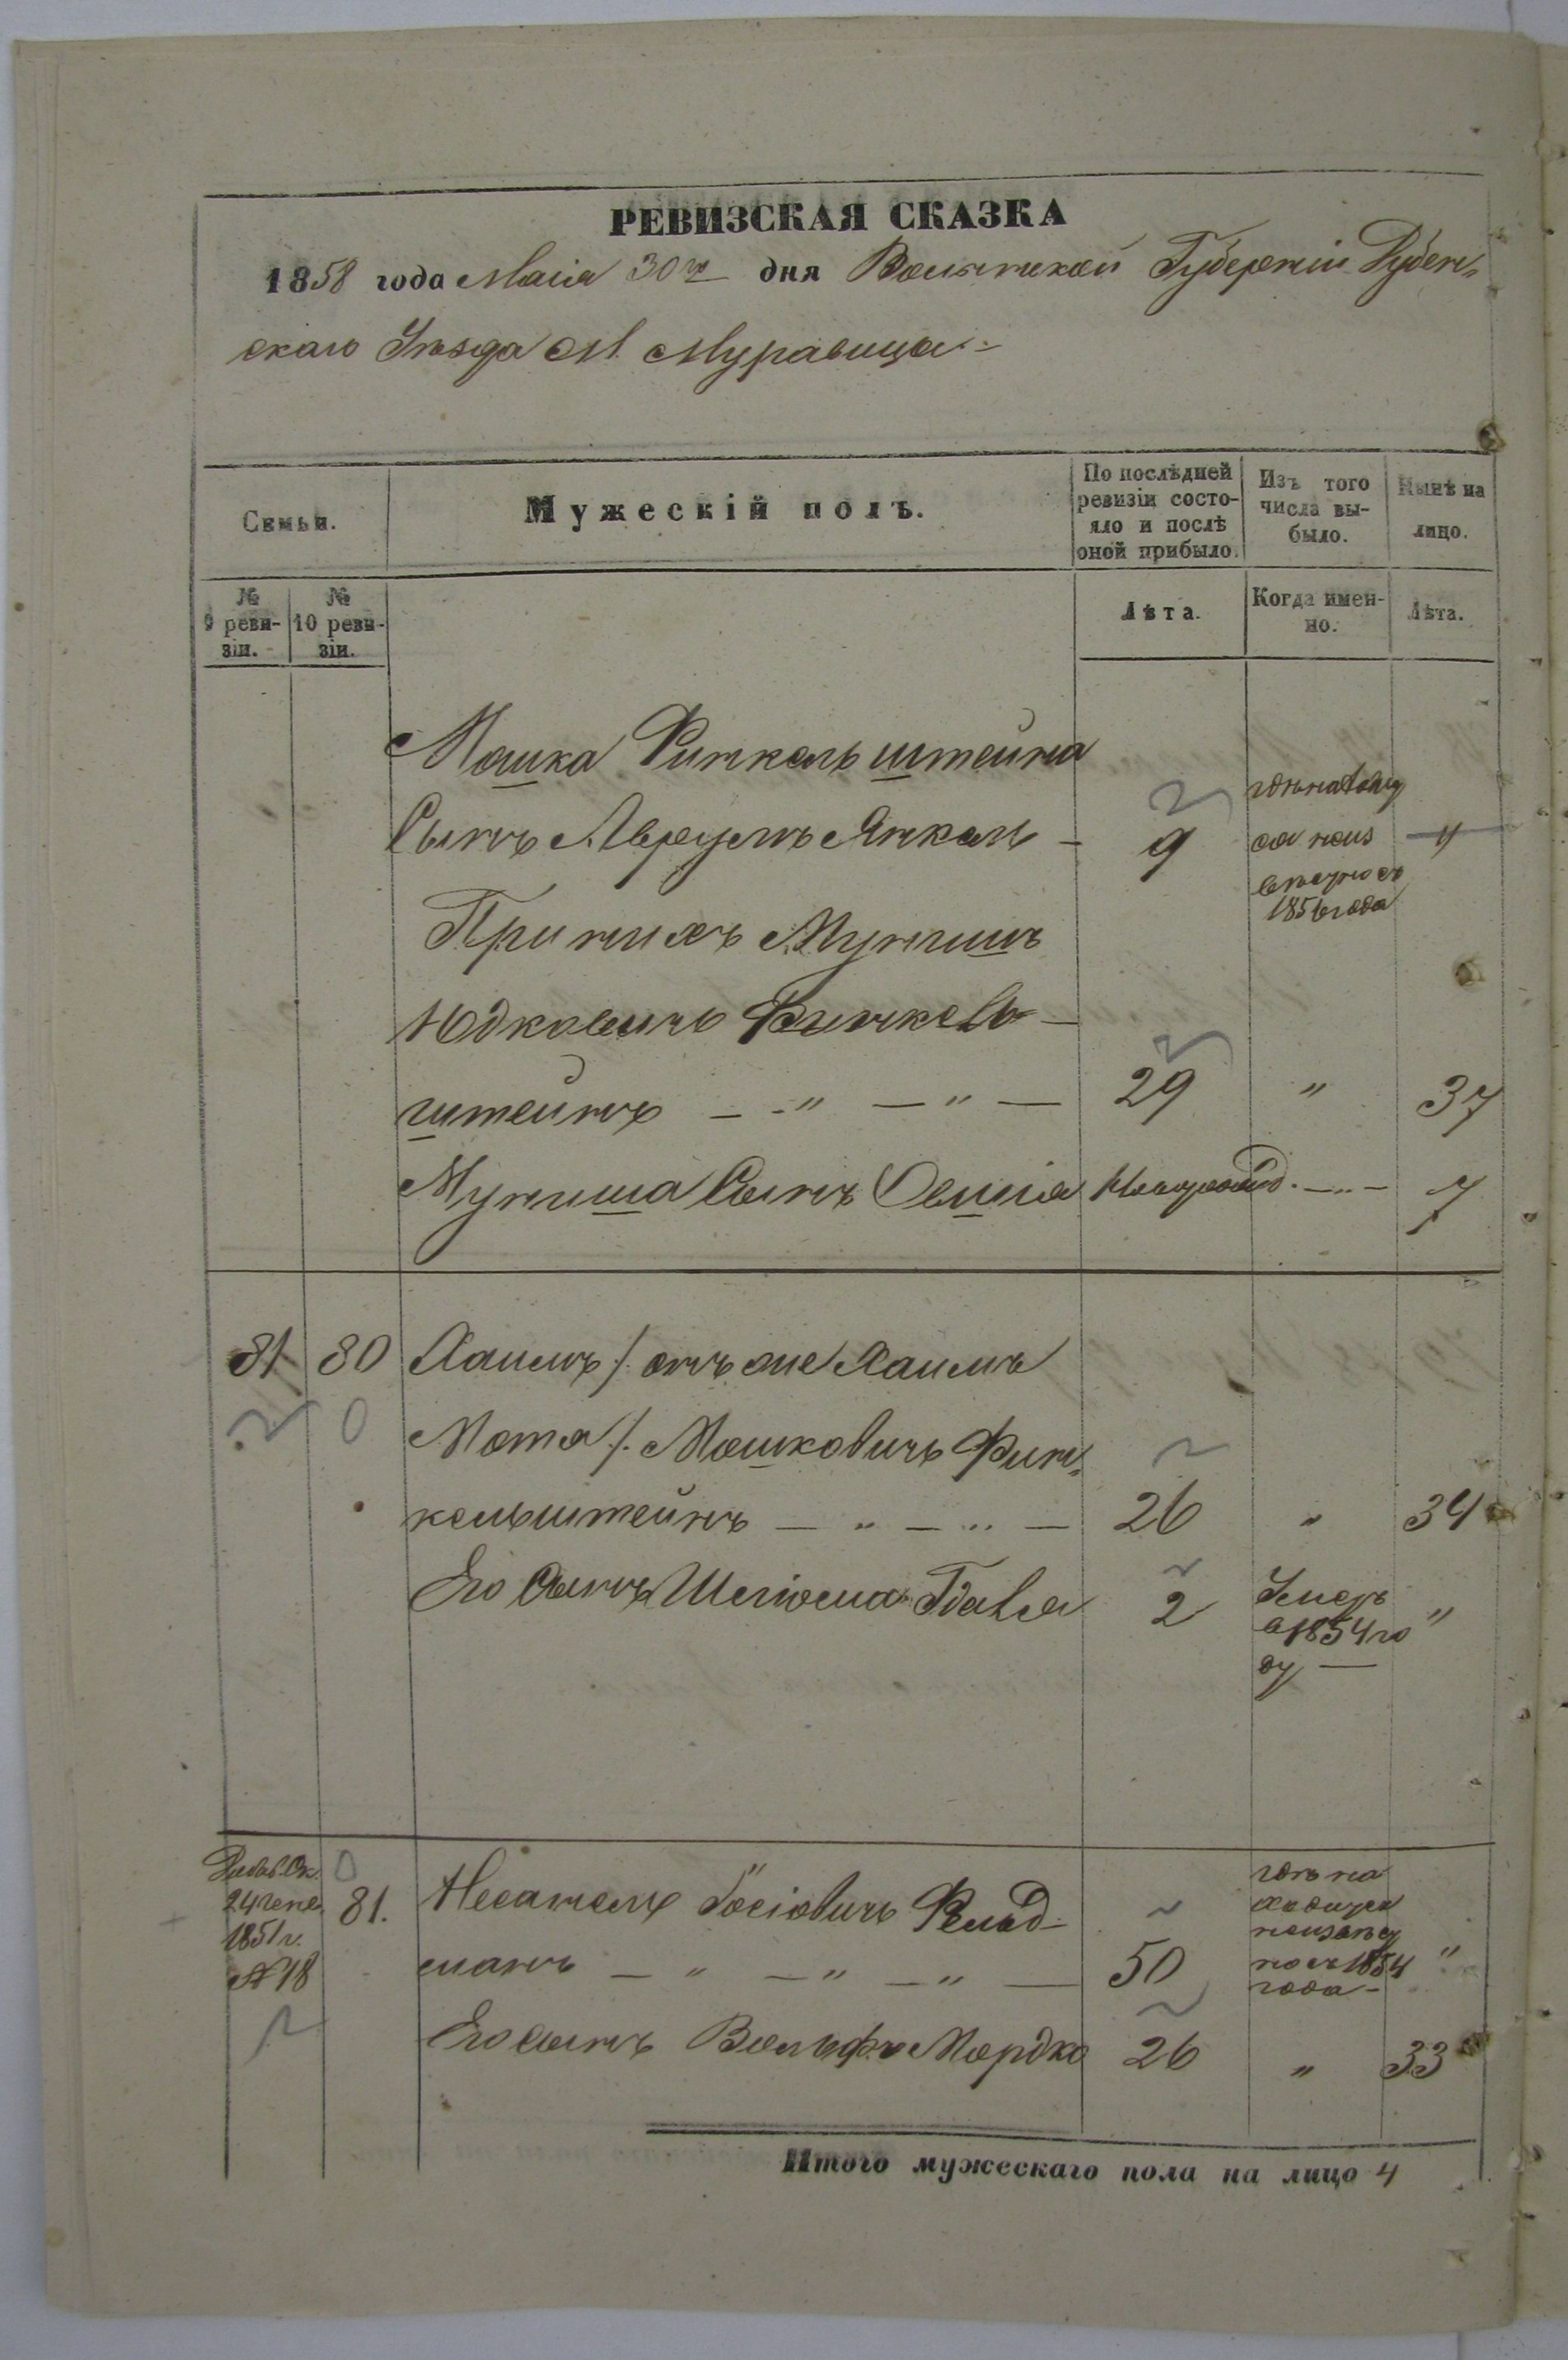 РЕВИЗСКАЯ СКАЗКА
1858 года Маія 30го дня Волынской Губерніи Дубен-
скаго Уѣзда М. Муравица
Семьи.
Мужескій полъ.
По послѣдней ревизіи состо-
яло и послѣ
оной прибыло.
Изъ того
числа вы-
было.
Нынѣ на
лицо.
№
9 реви-
зіи.
№
10 реви-
зіи.
Лѣта.
Когда имен-
но.
Лѣта.
Мошка Финкельштейна
Сынъ Аврумъ Янкель - 9
1856 года
При нихъ Мунишъ
Юдковичъ Финкель-
штейнъ — " — " — 29 " 37
Муниша Сынъ Овшія Новорожд. — " — 7
81 80 Хаимъ /: онъ же Хаимъ
Мота /: Мошковичъ Фин-
кельштейнъ — " — " — 26 " 34
Его Сынъ Шліома Давля 2 Умеръ
в 1854 го "
ду —
24 Генв.
1851 г.
№ 18
81. Іосіовичъ Фельд-
манъ — " — " — " — 50
гдѣ на
ходится
неизвѣ
но съ 1854 "
года -
Его сынъ Вольфъ Мордко 26 " 33
Итого мужескаго пола на лицо 4